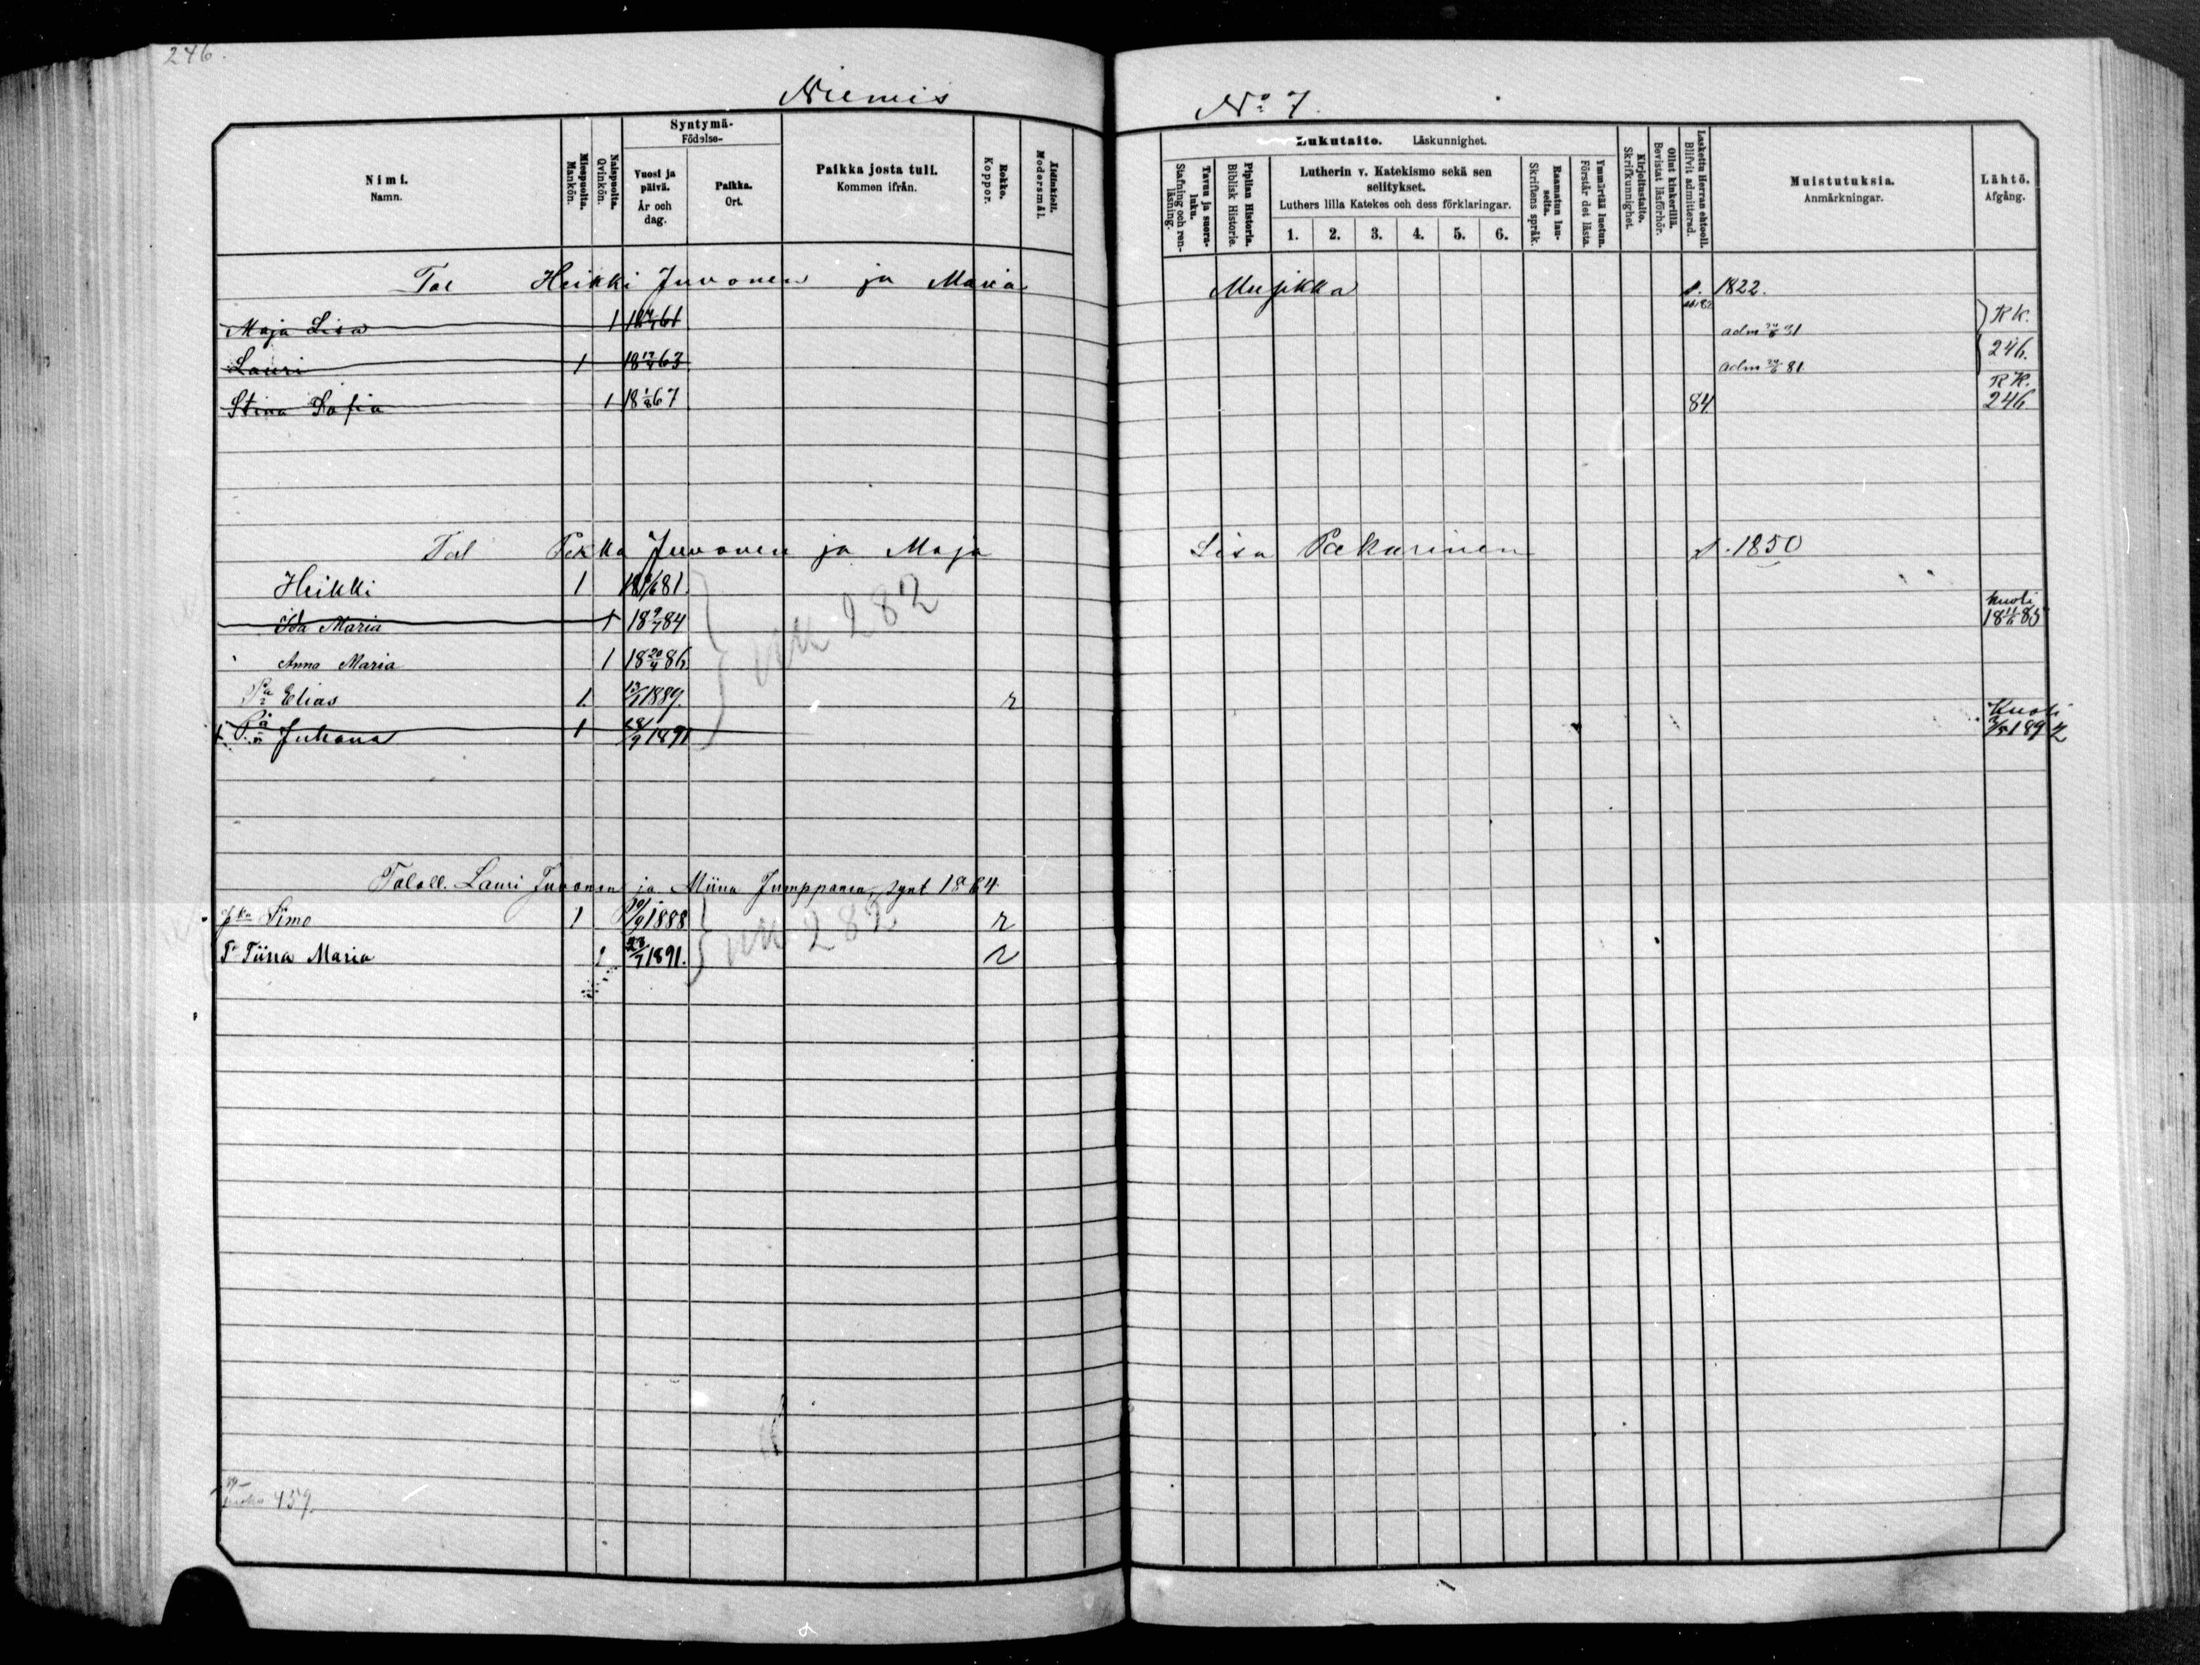 246.
Niemis No 7.
Nimi. Namn.
Miespuolta. Mankön.
Naispuolta. Qvinkön.
Syntymä- Födelse-
Vuosi ja päivä. År och dag.
Paikka. Ort.
Paikka josta tuli. Kommen ifrån.
Rokko. Koppor.
Äidinkieli. Modersmål.
Lukutaito. Läskunnighet.
Tavuu ja suora-luku. Stafning och ren-läsning.
Piplian Historia. Biblisk Historie.
Lutherin v. Katekismo sekä sen selitykset.
Luthers lilla Katekes och dess förklaringar.
1. 2. 3. 4. 5. 6.
Raamatun lau-seita. Skriftens språk.
Ymmärtää luetun. Förstår det lästa.
Kirjoitustaito. Skrifkunnighet.
Ollut kinkerillä. Bevistat läsförhör.
Laskettu Herran ehtooll. Blifvit admitterad.
Muistutuksia. Anmärkningar.
Lähtö. Afgång.
Tal Heikki Juvonen ja Maria Musikka s. 1822.
Maja Lisa 1 61 adm 31 RK.
Lauri 1 18 63 adm 81 246.
Stina Sofia 1 18 1/8 67 84 RK. 246
Tal Pekka Juvonen ja Maja Lisa Pekurinen s. 1850
Heikki 1 81.
Ida Maria 1 18 84 kuoli 18 85
Anna Maria 1 18 20/4 86
Elias 1. 13/1 1889. r
Juhana 1 28/9 1891 Kuoli 1892
UK 282
Taloll. Lauri Juvonen ja Miina Jumppanen, synt 1864
Simo 1 1888 r
Tiina Maria 1 23/7 1891. r
UK 282
459.